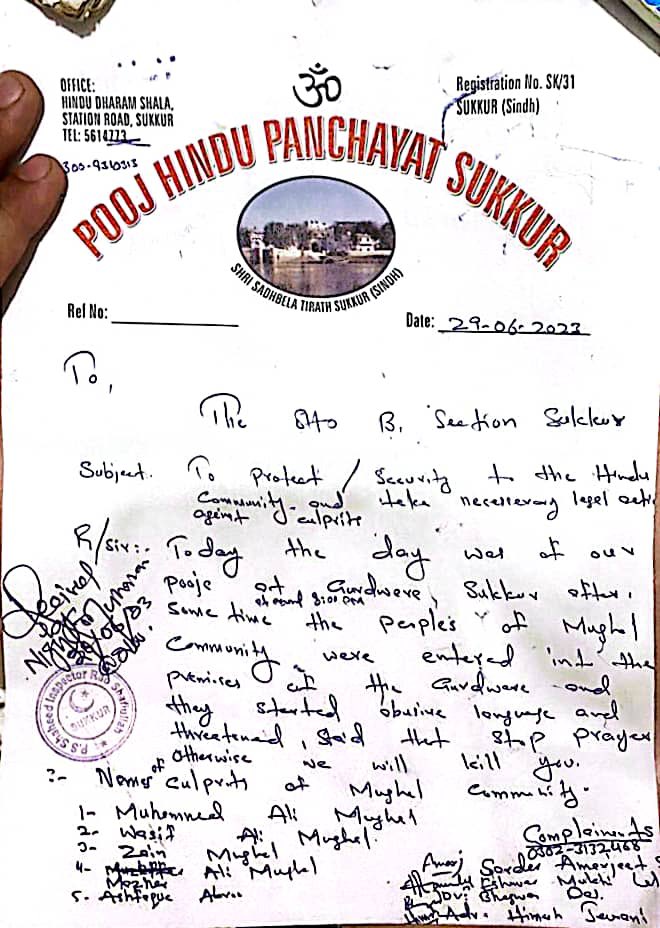 OFFICE:
HINDU DHARAM SHALA,
STATION ROAD, SUKKUR
TEL: 5614773
300-9310313
ॐ
Registration No. SK/31
SUKKUR (Sindh)
POOJ HINDU PANCHAYAT SUKKUR
SHRI SADHBELA TIRATH SUKKUR (SINDH)
Rel No:
Date: 29-06-2023
To,
The SHO B, Section Sukkur
Subject. To Protect / Security to the Hindu
Community and take necessevery legal acti
against culprits
R/Sir:- Today the day was of our
Pooja at Gurdwara, Sukkur after.
at around 8:00 PM
Some time the peoples of Mughal
Community were entered int the
premises at the Gurdwara and
they started abusive language and
threatened, said that stop prayer
Otherwise we will kill you.
:- Names of culprits of Mughal Community.
1- Muhammad Ali Mughal
2- Wasif Ali Mughal.
3- Zain Mughal
4- Mazher Ali Mughal
5. Ashfaque
P.S Shaheed Inspector
SUKKUR
Complainents
0302-3132468
Sardar Amarjeet S
Eshwar Mukhi
Bhagwan Das.
Adv. Himah